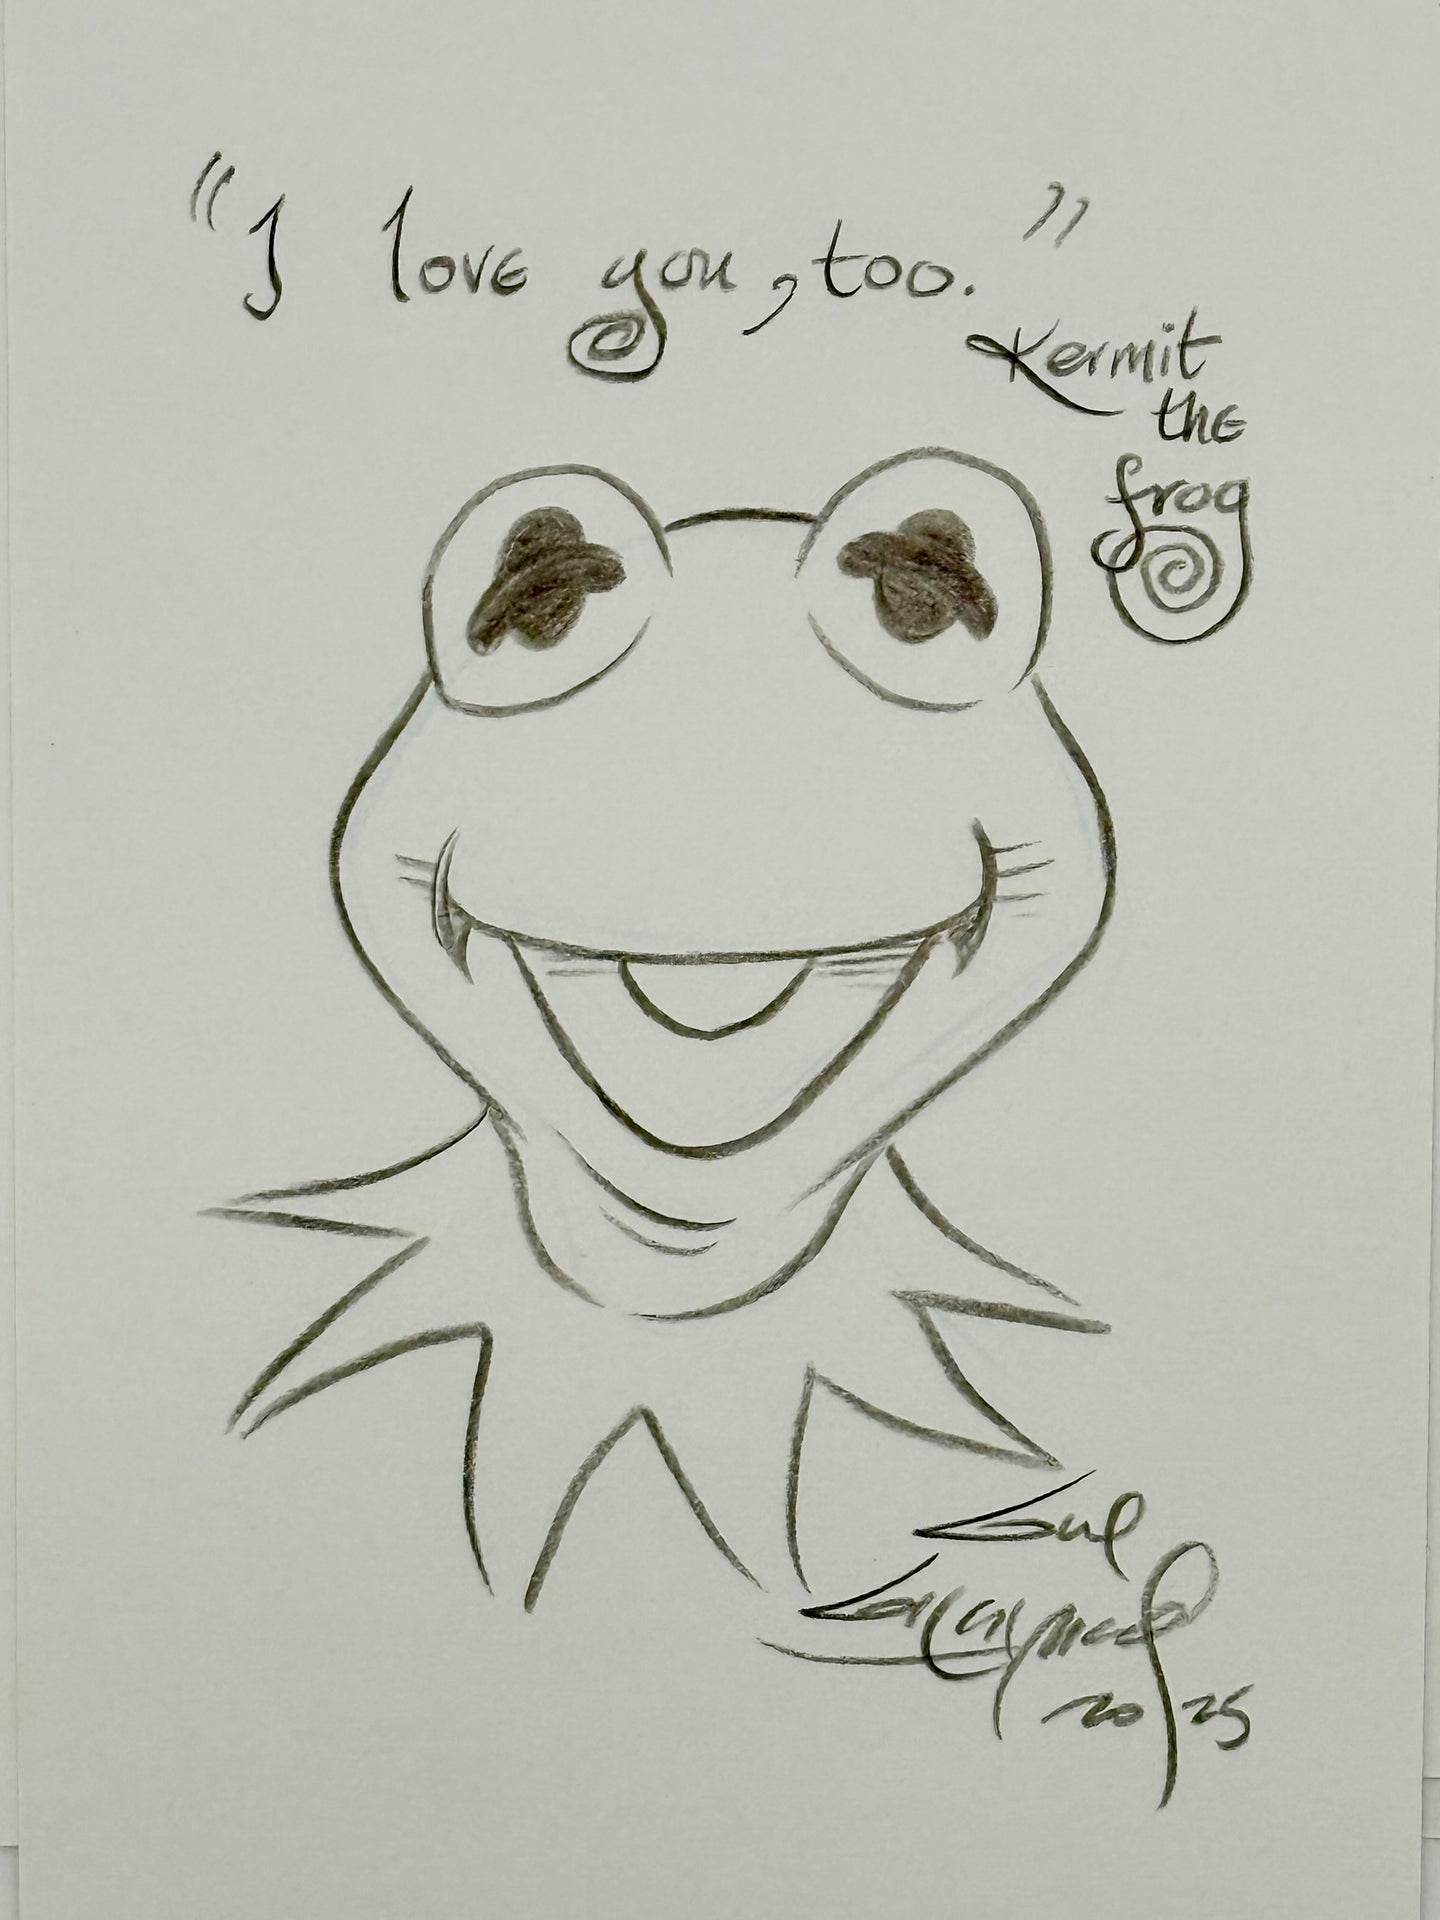 "I love you, too."
Kermit
the
frog
2025